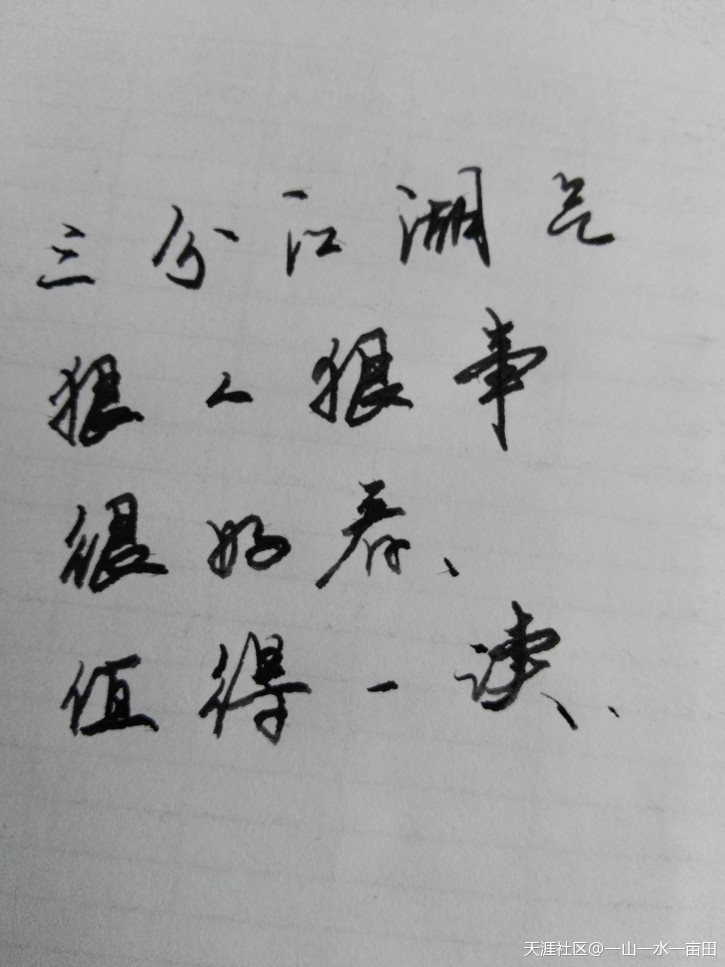 三分江湖是
狠人狠事
很好看、
值得一读、
天涯社区@一山一水一亩田